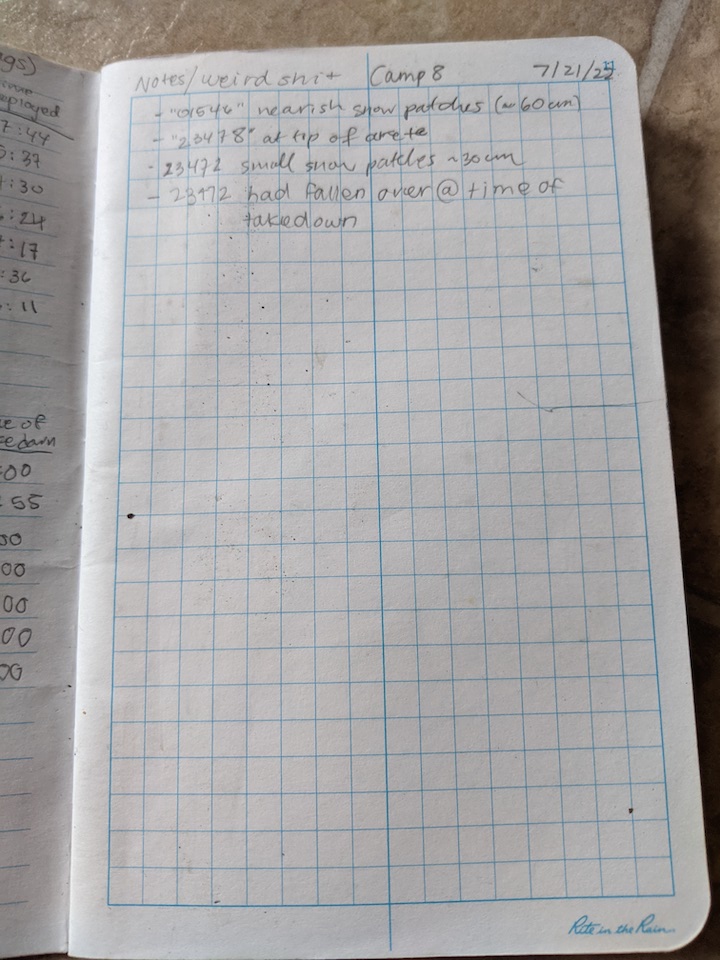 gs)
ployed
7:44
:37
:30
:24
:17
:36
:11
e of
edown
:00
:55
00
00
00
00
Notes/weird shit Camp 8 7/21/22
- "01546" nearish snow patches (~60cm)
- "23478" at tip of arete
- 23472 small snow patches ~30cm
- 23472 had fallen over @ time of
takedown
Rite in the Rain